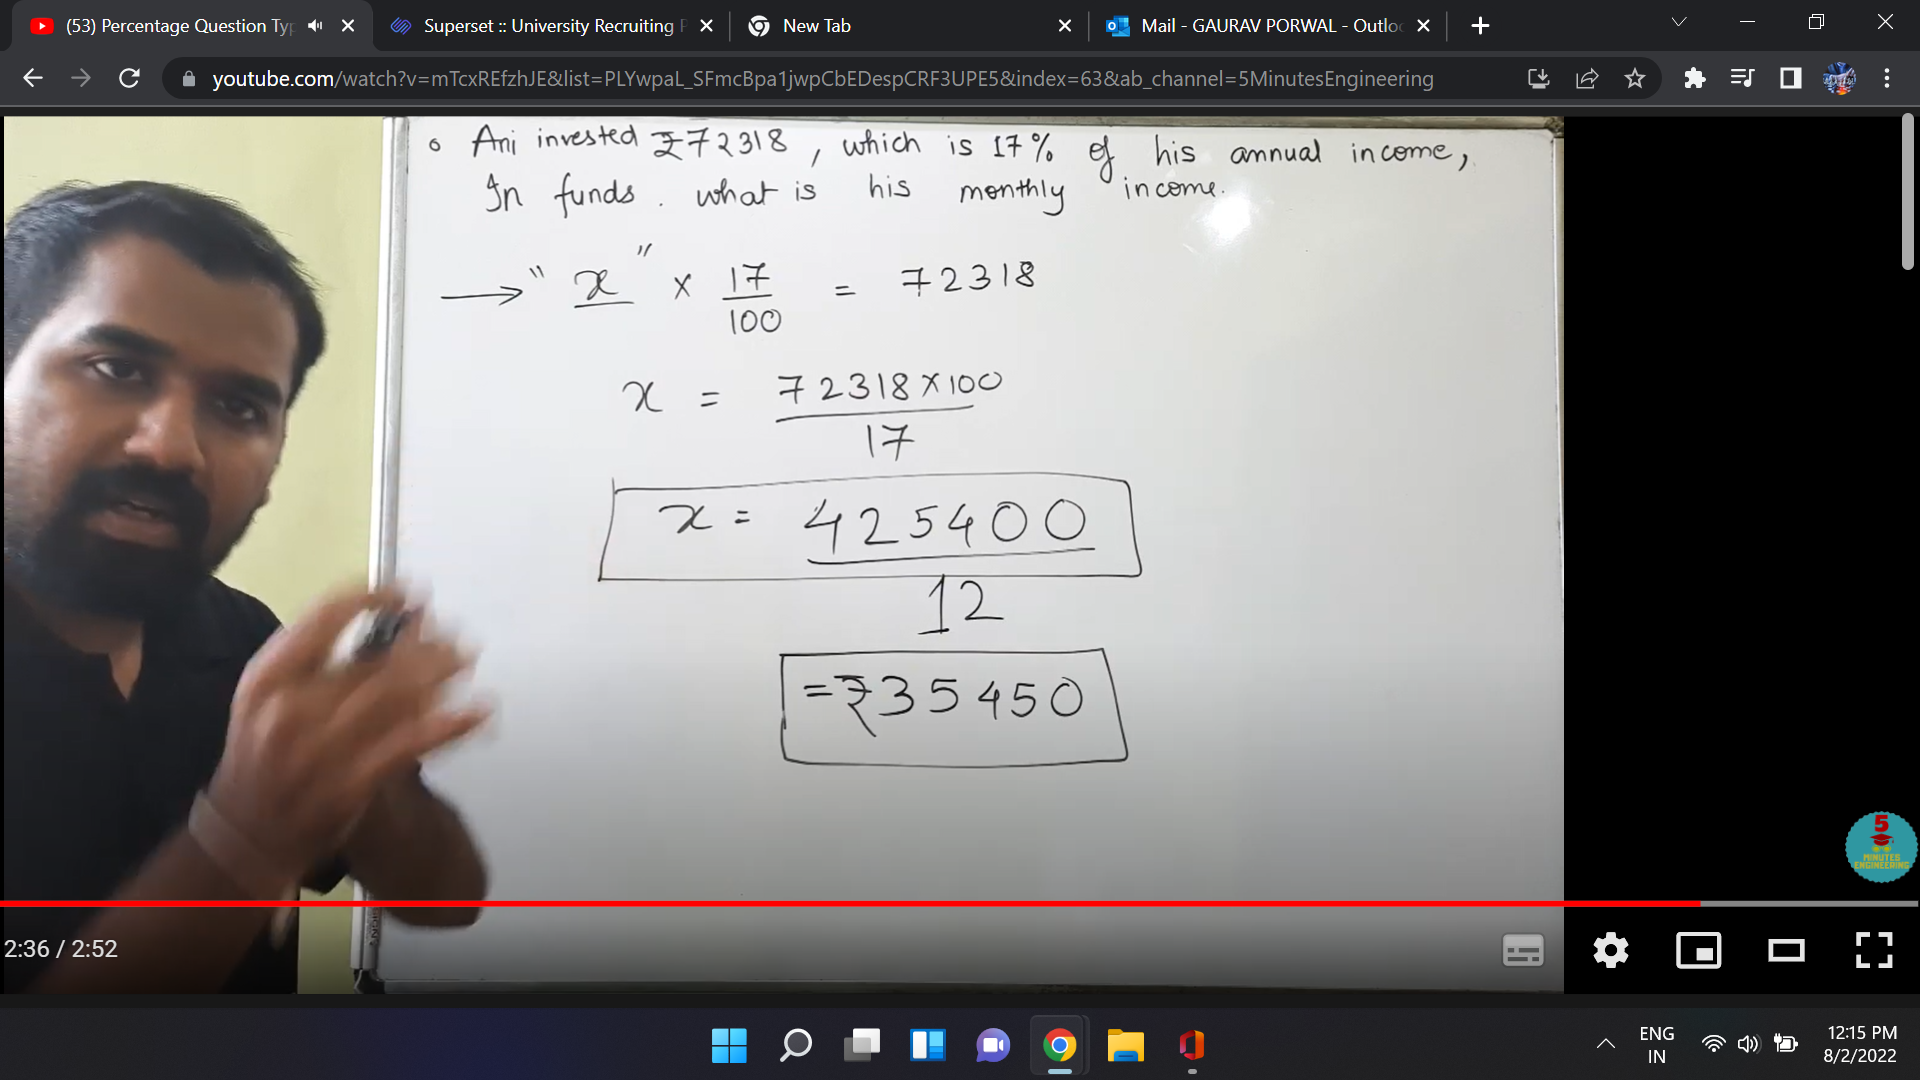 (53) Percentage Question Typ
Superset :: University Recruiting P
New Tab
Mail - GAURAV PORWAL - Outlo
youtube.com/watch?v=mTcxREfzhJE&list=PLYwpaL_SFmcBpa1jwpCbEDespCRF3UPE5&index=63&ab_channel=5MinutesEngineering
Ani invested ₹72318, which is 17% of his annual income,
In funds. what is his monthly income.
→ "x" × 17/100 = 72318
x = 72318×100/17
x = 425400
12
=₹35450
5
MINUTES
ENGINEERING
2:36 / 2:52
ENG
IN
12:15 PM
8/2/2022